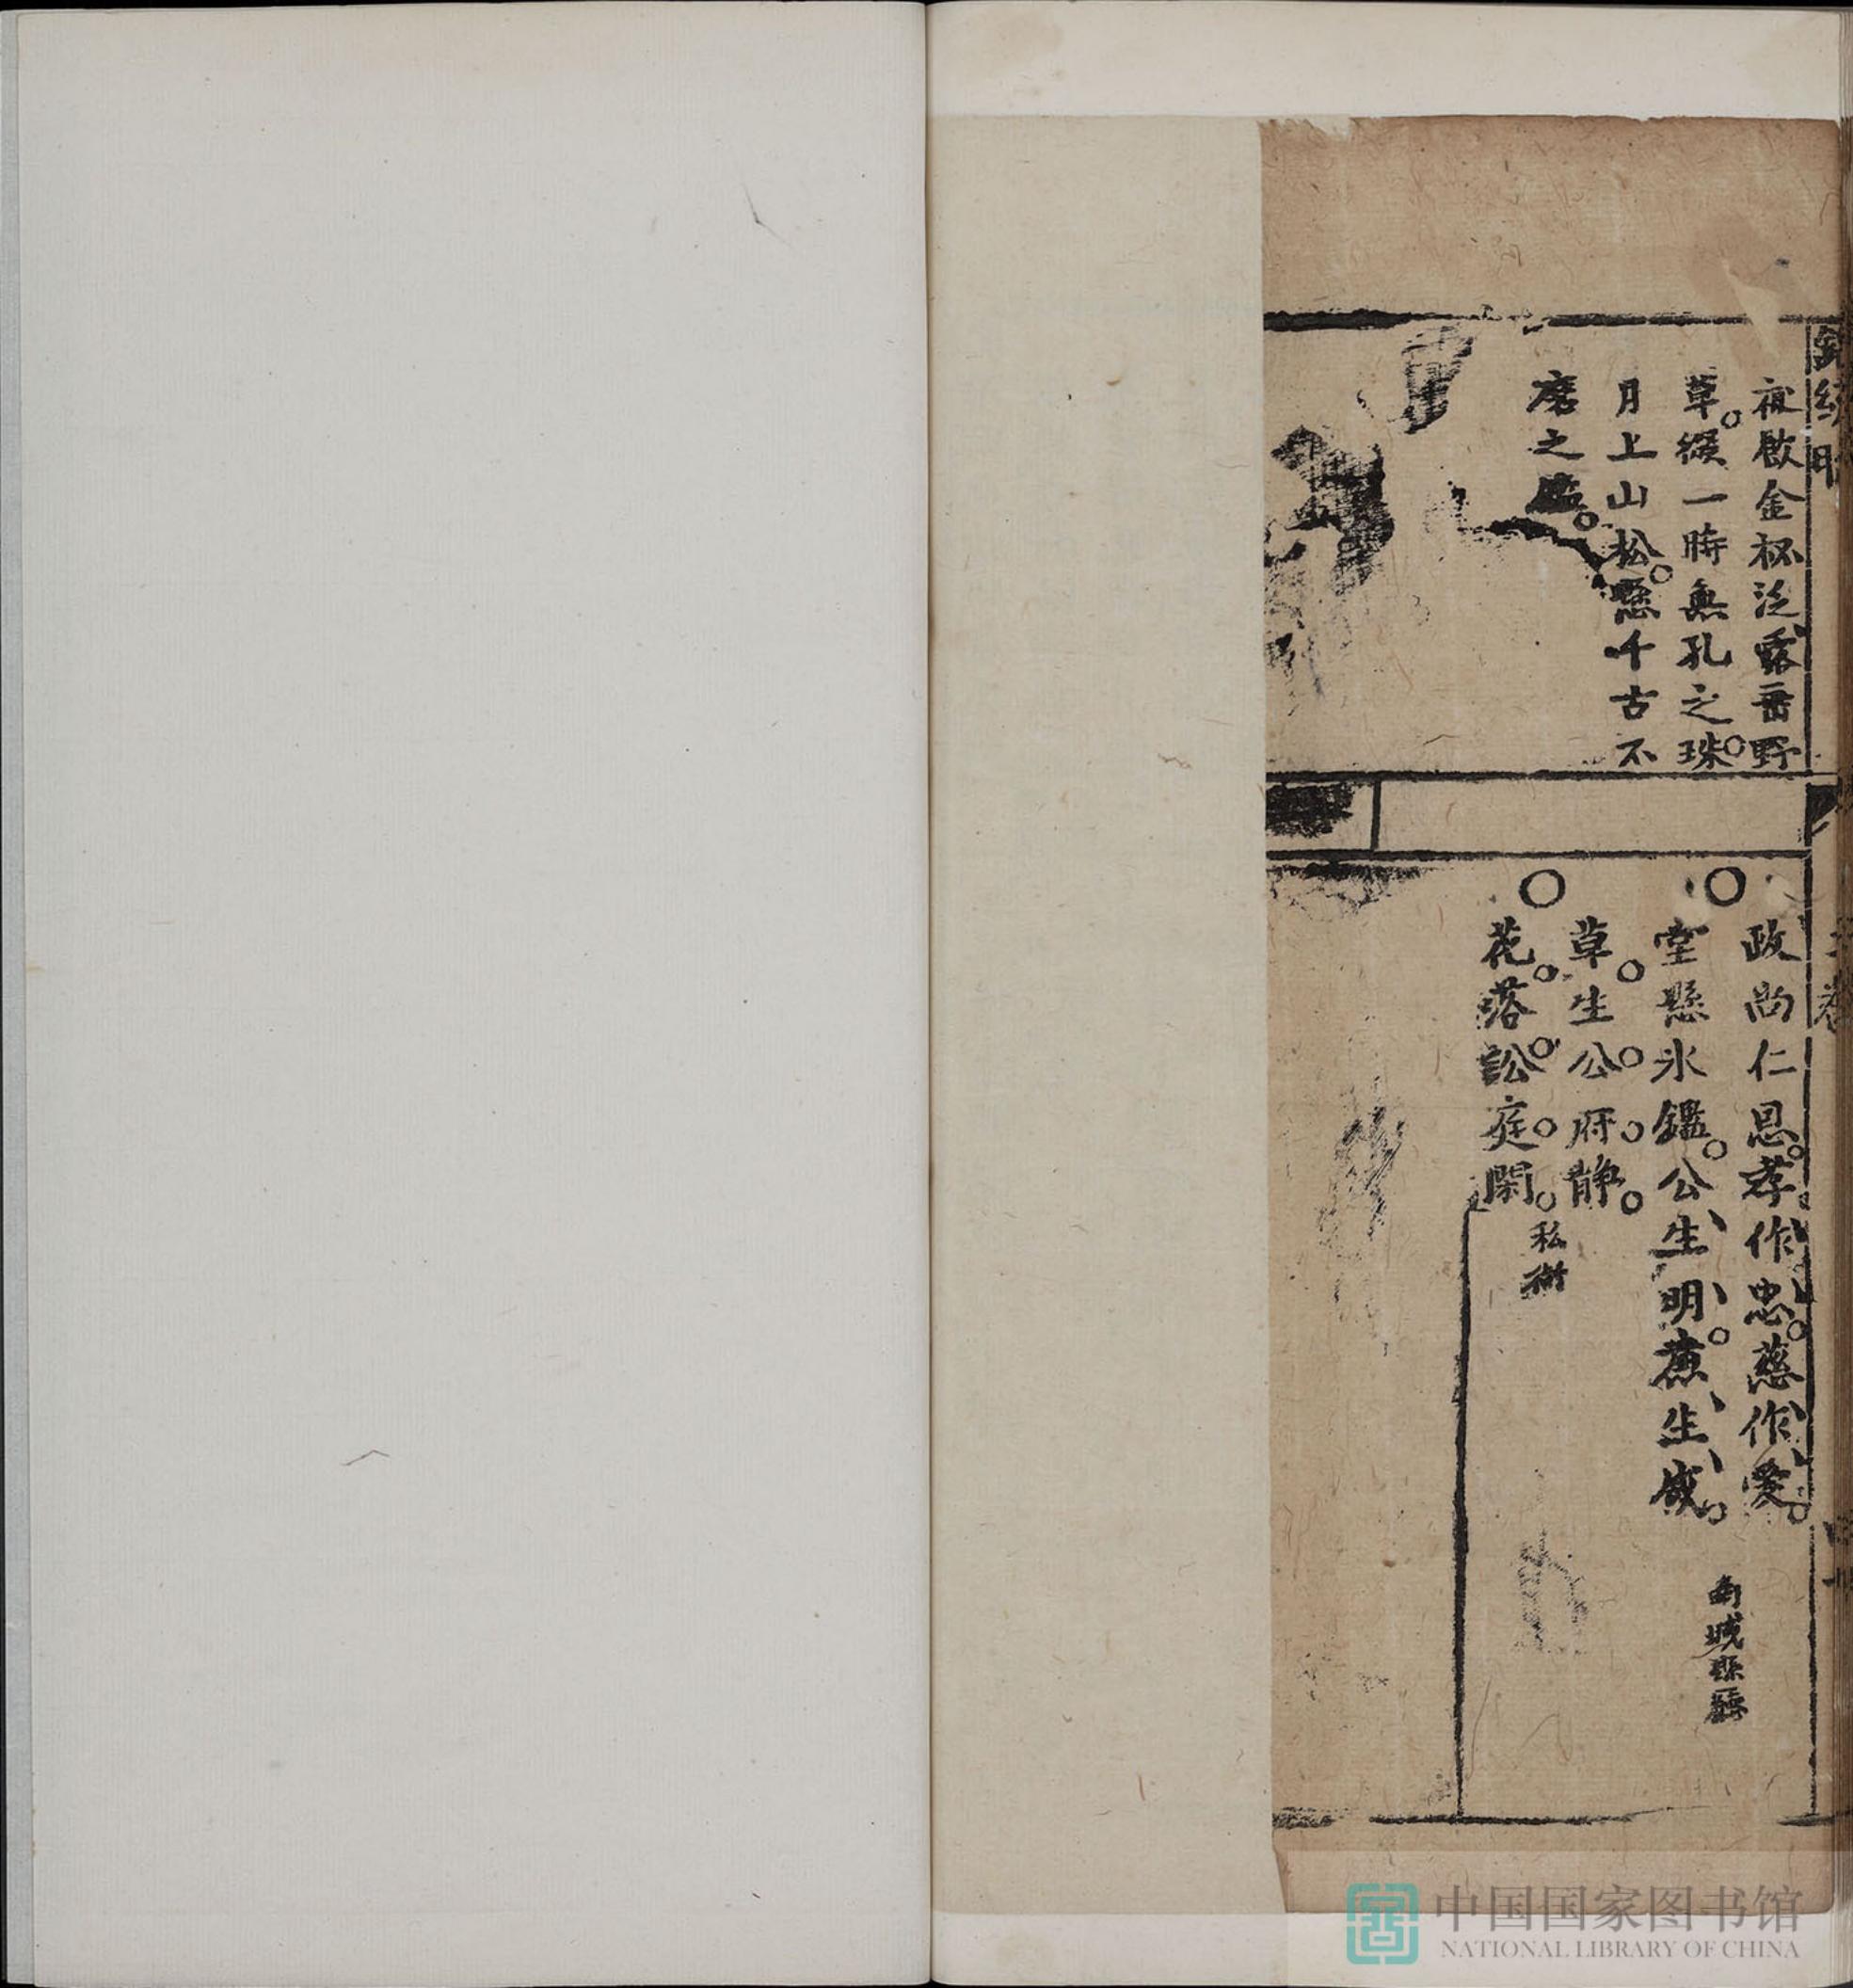 夜歐金杯泛露垂野
草綴一時無孔之珠
月上山松懸千古不
磨之鑑
政尚仁恩孝作忠慈作愛
堂懸氷鑑公生明廉生威
南城縣廳
草生公府静
花落訟庭閑
私衙
中国国家图书馆
NATIONAL LIBRARY OF CHINA